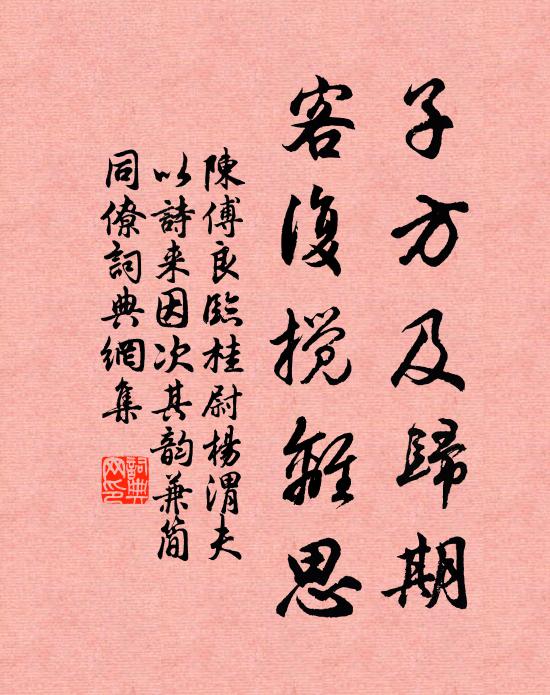 子方及歸期
客復攪離思
陳傅良臨桂尉楊渭夫
以詩来因次其韵兼簡
同僚詞典網集
詞典网印